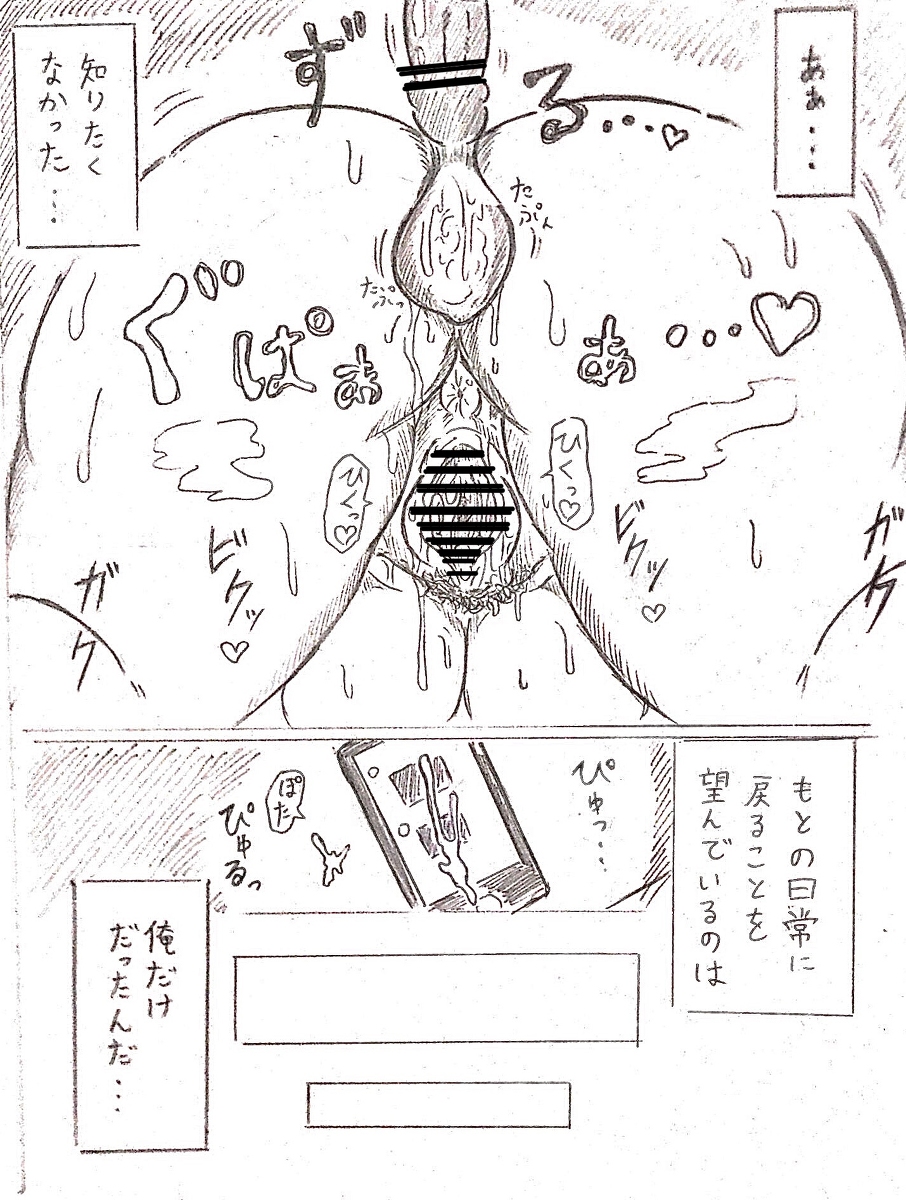 ああ・・・
知りたく
なかった・・・
ずる・・・♡
たぷん
たぷっ
ぐぱぁぁ・・・♡
ひくっ♡
ひくっ♡
ビクッ♡
ビクッ♡
ガク
ガク
もとの日常に
戻ることを
望んでいるのは
ぴゅっ・・・
ぽた
ぴゅるっ
俺だけ
だったんだ・・・